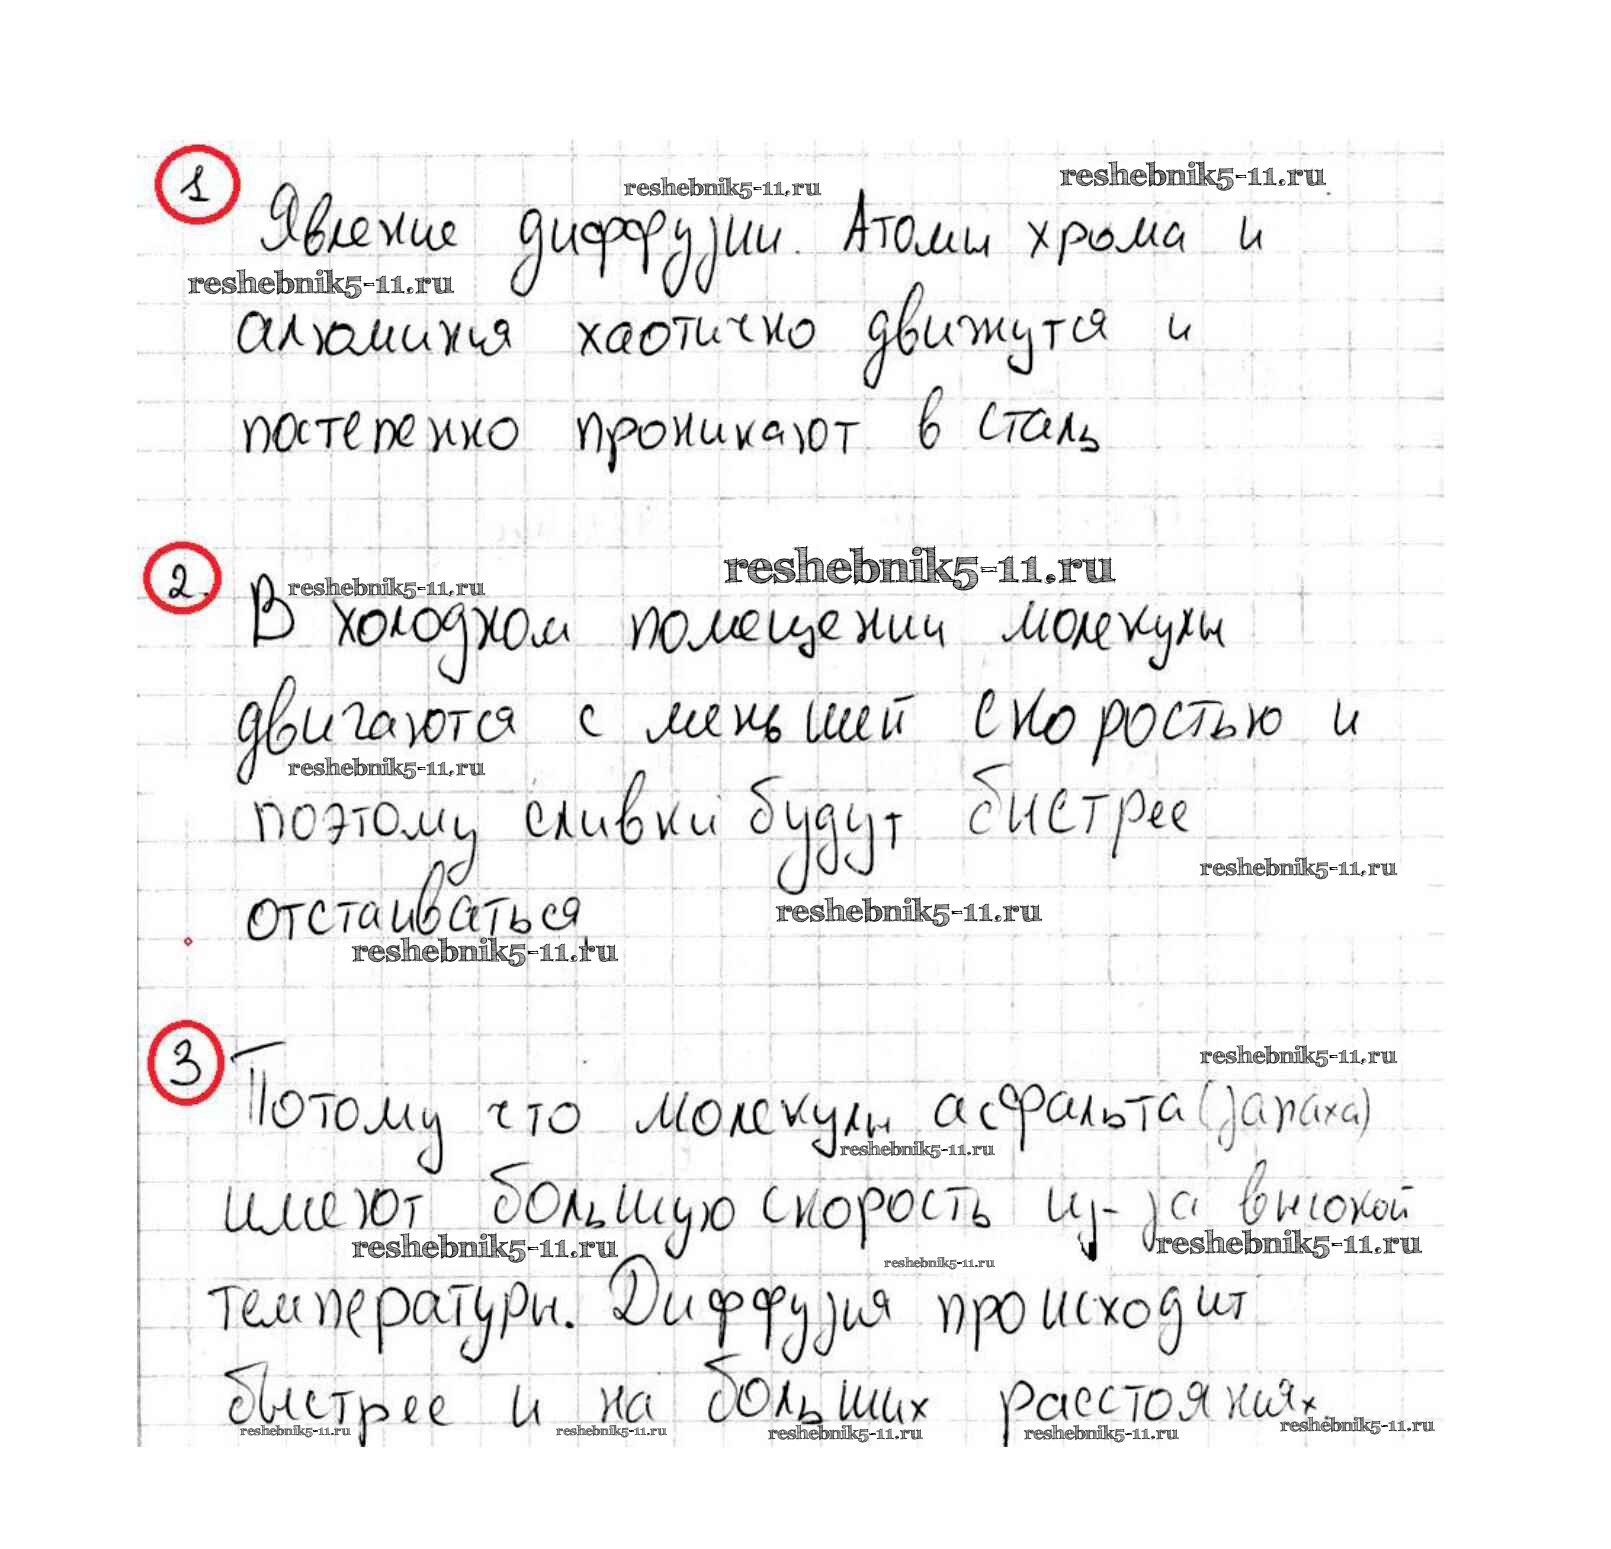 1
reshebnik5-11.ru reshebnik5-11.ru
Явление диффузии. Атомы хрома и
reshebnik5-11.ru
алюминия хаотично движутся и
постепенно проникают в сталь
2. reshebnik5-11.ru
reshebnik5-11.ru
В холодном помещении молекулы
двигаются с меньшей скоростью и
reshebnik5-11.ru
поэтому сливки будут быстрее
reshebnik5-11.ru
отстаиваться. reshebnik5-11.ru
reshebnik5-11.ru
3
reshebnik5-11.ru
Потому что молекулы асфальта (запаха)
reshebnik5-11.ru
имеют большую скорость из-за высокой
reshebnik5-11.ru reshebnik5-11.ru reshebnik5-11.ru
температуры. Диффузия происходит
быстрее и на больших расстояниях.
reshebnik5-11.ru reshebnik5-11.ru reshebnik5-11.ru reshebnik5-11.ru reshebnik5-11.ru